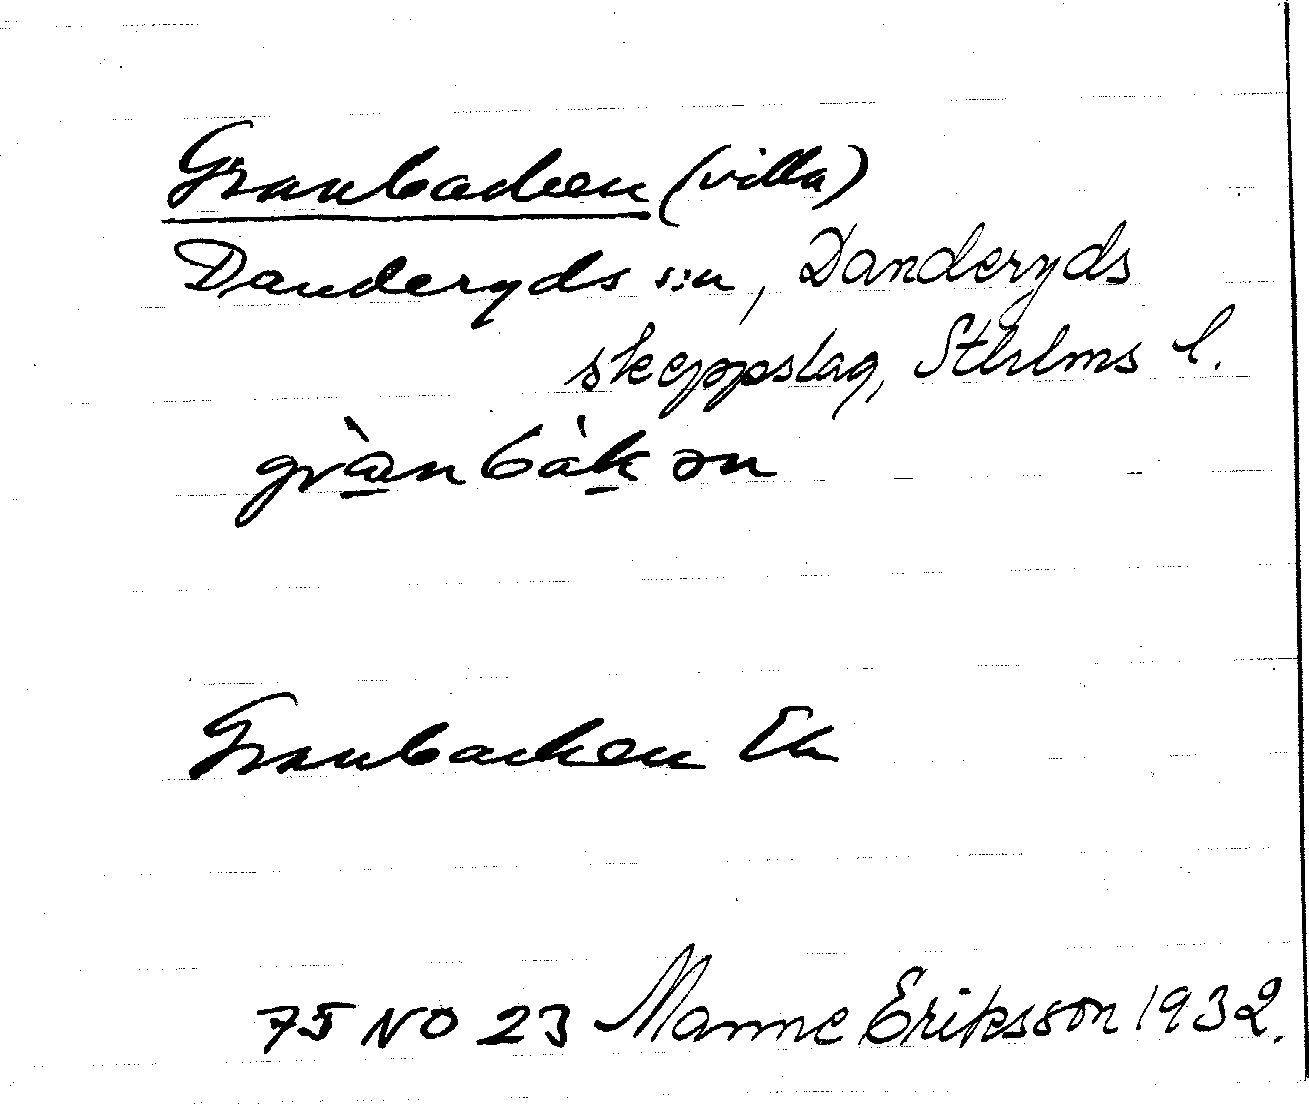 Granbacken (villa)
Danderyds s:n, Danderyds
skeppslag, Sthlms l.
grànbàkən
Granbacken Ek
75 NO 23 Manne Eriksson 1932.